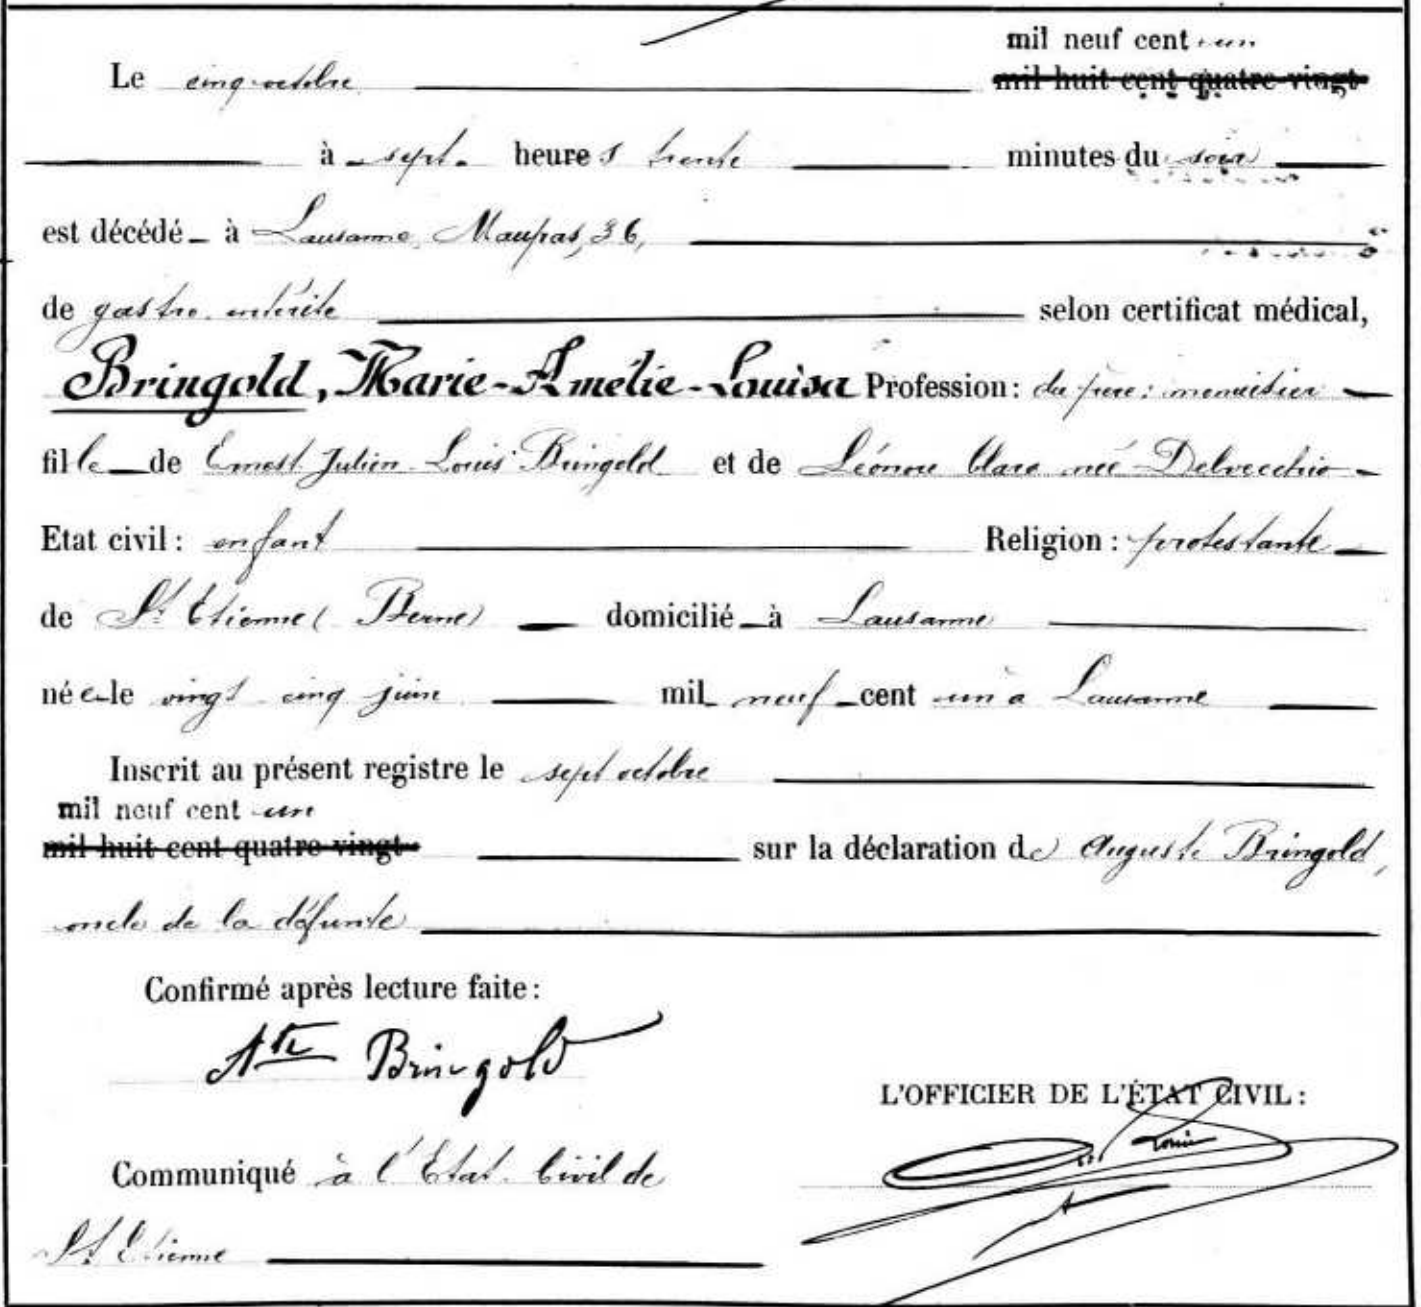 mil neuf cent un
Le cinq octobre mil huit cent quatre-vingt
à sept heures trente minutes du soir
est décédé à Lausanne, Maupas, 36,
de gastro-entérite selon certificat médical,
Bringold, Marie-Amélie-Louisa Profession: du père: menuisier
fille de Ernest Julien Louis Bringold et de Léonore Clara née Delvecchio
Etat civil: enfant Religion: protestante
de St Etienne (Berne) domicilié à Lausanne
née le vingt cinq juin mil neuf cent un à Lausanne
Inscrit au présent registre le sept octobre
mil neuf cent un
mil huit cent quatre-vingt sur la déclaration de Auguste Bringold,
oncle de la défunte
Confirmé après lecture faite:
Ate Bringold
L'OFFICIER DE L'ÉTAT CIVIL:
Communiqué à l'Etat Civil de
St Etienne